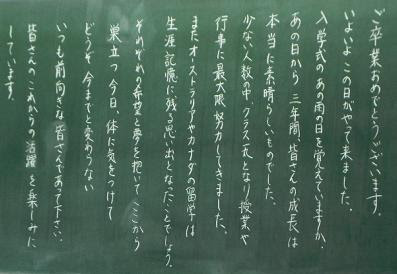 ご卒業おめでとうございます。
いよいよこの日がやって来ました。
入学式のあの雨の日を覚えていますか。
あの日から三年間、皆さんの成長は
本当に素晴らしいものでした。
少ない人数の中、クラス一丸となり授業や
行事に最大限努力してきました。
またオーストラリアやカナダの留学は
生涯記憶に残る思い出となったことでしょう。
それぞれの希望と夢を抱いてここから
巣立つ今日、体に気をつけて
どうぞ今までと変わらない
いつも前向きな皆さんであって下さい。
皆さんのこれからの活躍を楽しみに
しています。